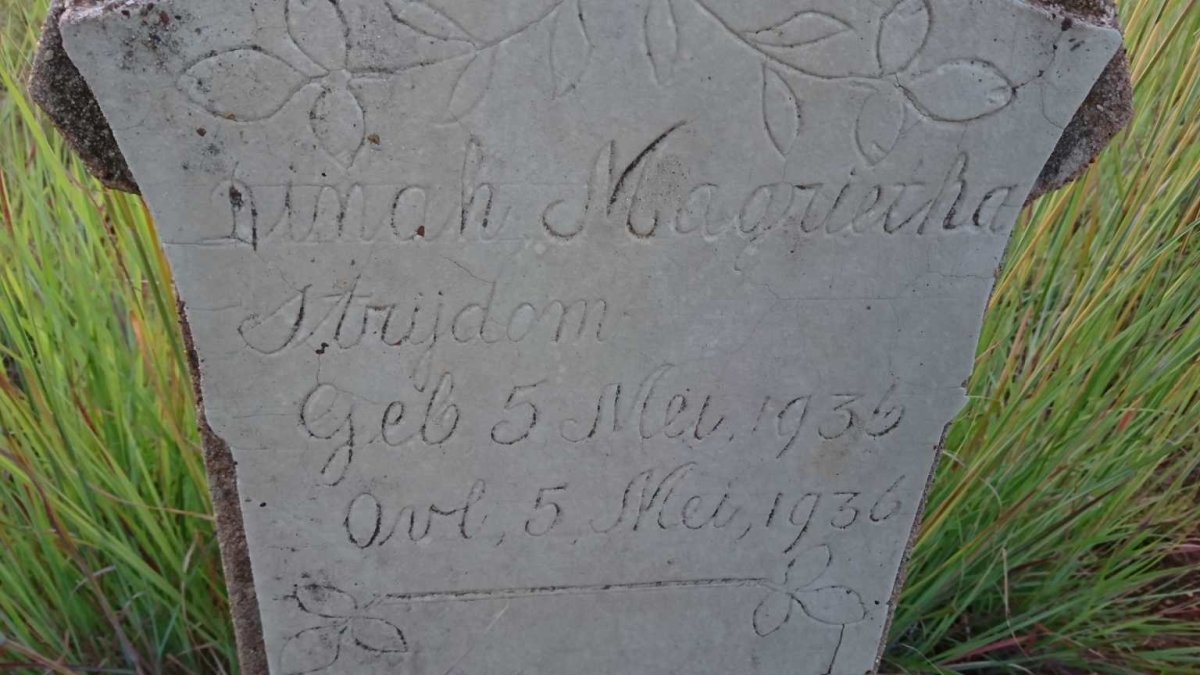 Dinah Magriecha
Strijdom
Geb 5 Mei, 1936
Ovl, 5, Mei, 1936